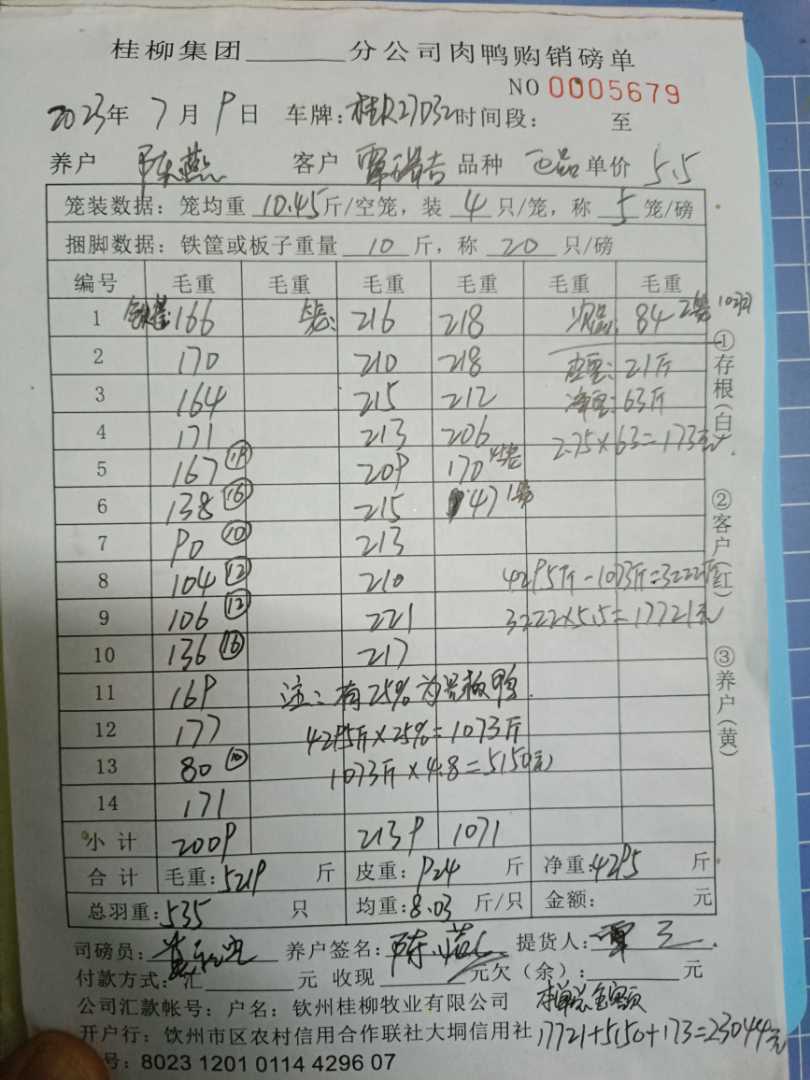 桂柳集团______分公司肉鸭购销磅单
NO 0005679
2023年 7月 9日 车牌:桂R27D32 时间段: 至
养户 陈燕 客户 覃 品种 正品 单价 5.5
笼装数据:笼均重 10.45 斤/空笼,装 4 只/笼,称 5 笼/磅
捆脚数据:铁筐或板子重量 10 斤,称 20 只/磅
编号 毛重 毛重 毛重 毛重 毛重 毛重
1 铁筐:166 笼装: 216 218 次品: 84 2笼 10羽
2 170 210 218 皮重: 21斤
3 164 215 212 净重: 63斤
4 171 213 206 2.75×63=173元
5 167 ⑲ 209 170 4笼
6 138 ⑯ 215 47 1笼
7 90 ⑩ 213
8 104 ⑫ 210 4295斤-1073斤=3222斤
9 106 ⑫ 221 3222×5.5=17721元
10 136 ⑯ 217
11 169 注:有25%为另板鸭.
12 177 4295斤×25%=1073斤
13 80 ⑩ 1073斤×4.8=5150元
14 171
小计 2009 2139 1071
合计 毛重:5219 斤 皮重:924 斤 净重:4295 斤
总羽重:535 只 均重:8.03 斤/只 金额: 元
司磅员: 养户签名:陈 提货人:覃
付款方式:汇______元 收现______元欠(余):______元
公司汇款帐号:户名:钦州桂柳牧业有限公司 本单总金额
开户行:饮州市区农村信用合作联社大垌信用社 17721+5150+173=23044元
号:8023 1201 0114 4296 07
①存根(白)
②客户(红)
③养户(黄)